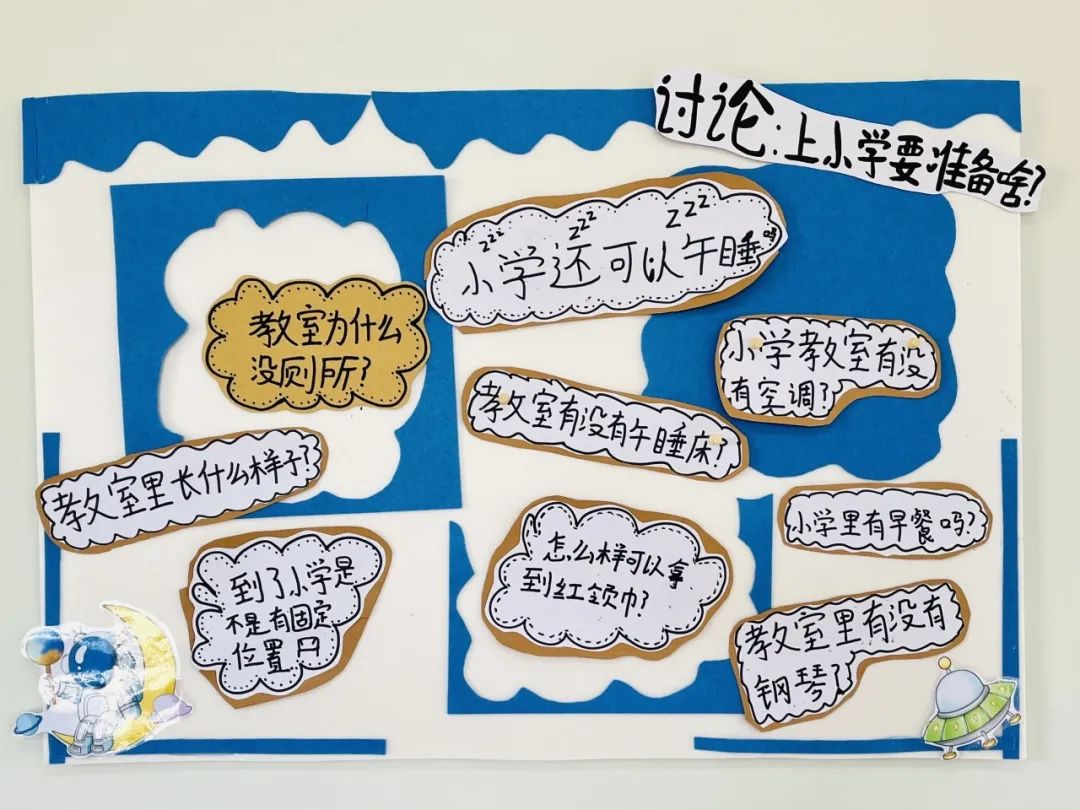 讨论:上小学要准备啥?
zzz zzz zzz
小学还可以午睡吗
教室为什么
没厕所?
小学教室有没
有空调?
教室有没有午睡床?
教室里长什么样子?
小学里有早餐吗?
到了小学是
不是有固定
位置
怎么样可以拿
到红领巾?
教室里有没有
钢琴?